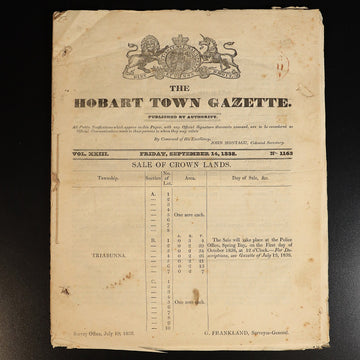 THE
HOBART TOWN GAZETTE.
PUBLISHED BY AUTHORITY.
All Public Notifications which appear in this Paper, with any Official Signature thereunto annexed, are to be considered as
Official Communications made to those persons to whom they may relate
By Command of His Excellency,
JOHN MONTAGU, Colonial Secretary.
VOL. XXIII. FRIDAY, SEPTEMBER 14, 1838. No 1163
SALE OF CROWN LANDS.
Township. Section No. of Lot. Area. Day of Sale, &c.
A. 1
2
3
4
5 One acre each.
6
7
8
A. R. P.
B. 1 0 3
2 0
TRIABUNNA. The Sale will take place at the Police
Office, Spring Bay, on the First day of
October 1838, at 12 o'Clock.—For De-
scriptions, see Gazette of July 19, 1838.
C. 1
2
3
4
5 One acre each.
6
7
8
9
10
Survey Office, July 19, 1838. G. FRANKLAND, Surveyor-General.